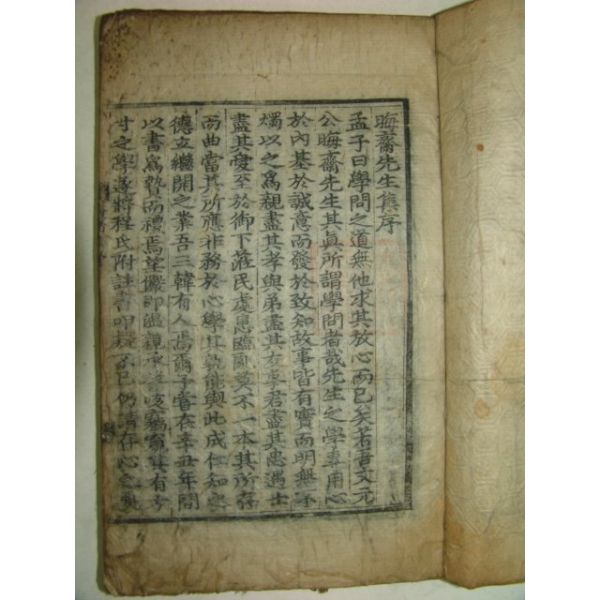 晦齋先生集序
孟子曰學問之道無他求其放心而已矣若晉文元
公晦齋先生其眞所謂學問者哉先生之學專用心
於內基於誠意而發於致知故事皆有實而明無不
燭以之爲親盡其孝與弟盡其友事君盡其忠遇士
盡其愛至於御下莅民處患臨亂莫不一本其所存
而曲當其所應非務於心學其孰能與此成仁知之
德立繼開之業吾三韓有人焉爾予嘗在辛丑年間
以書爲贄而禮焉望儼卽溫親承
寸之學遂將程氏附註書叩疑 已仍請存心之